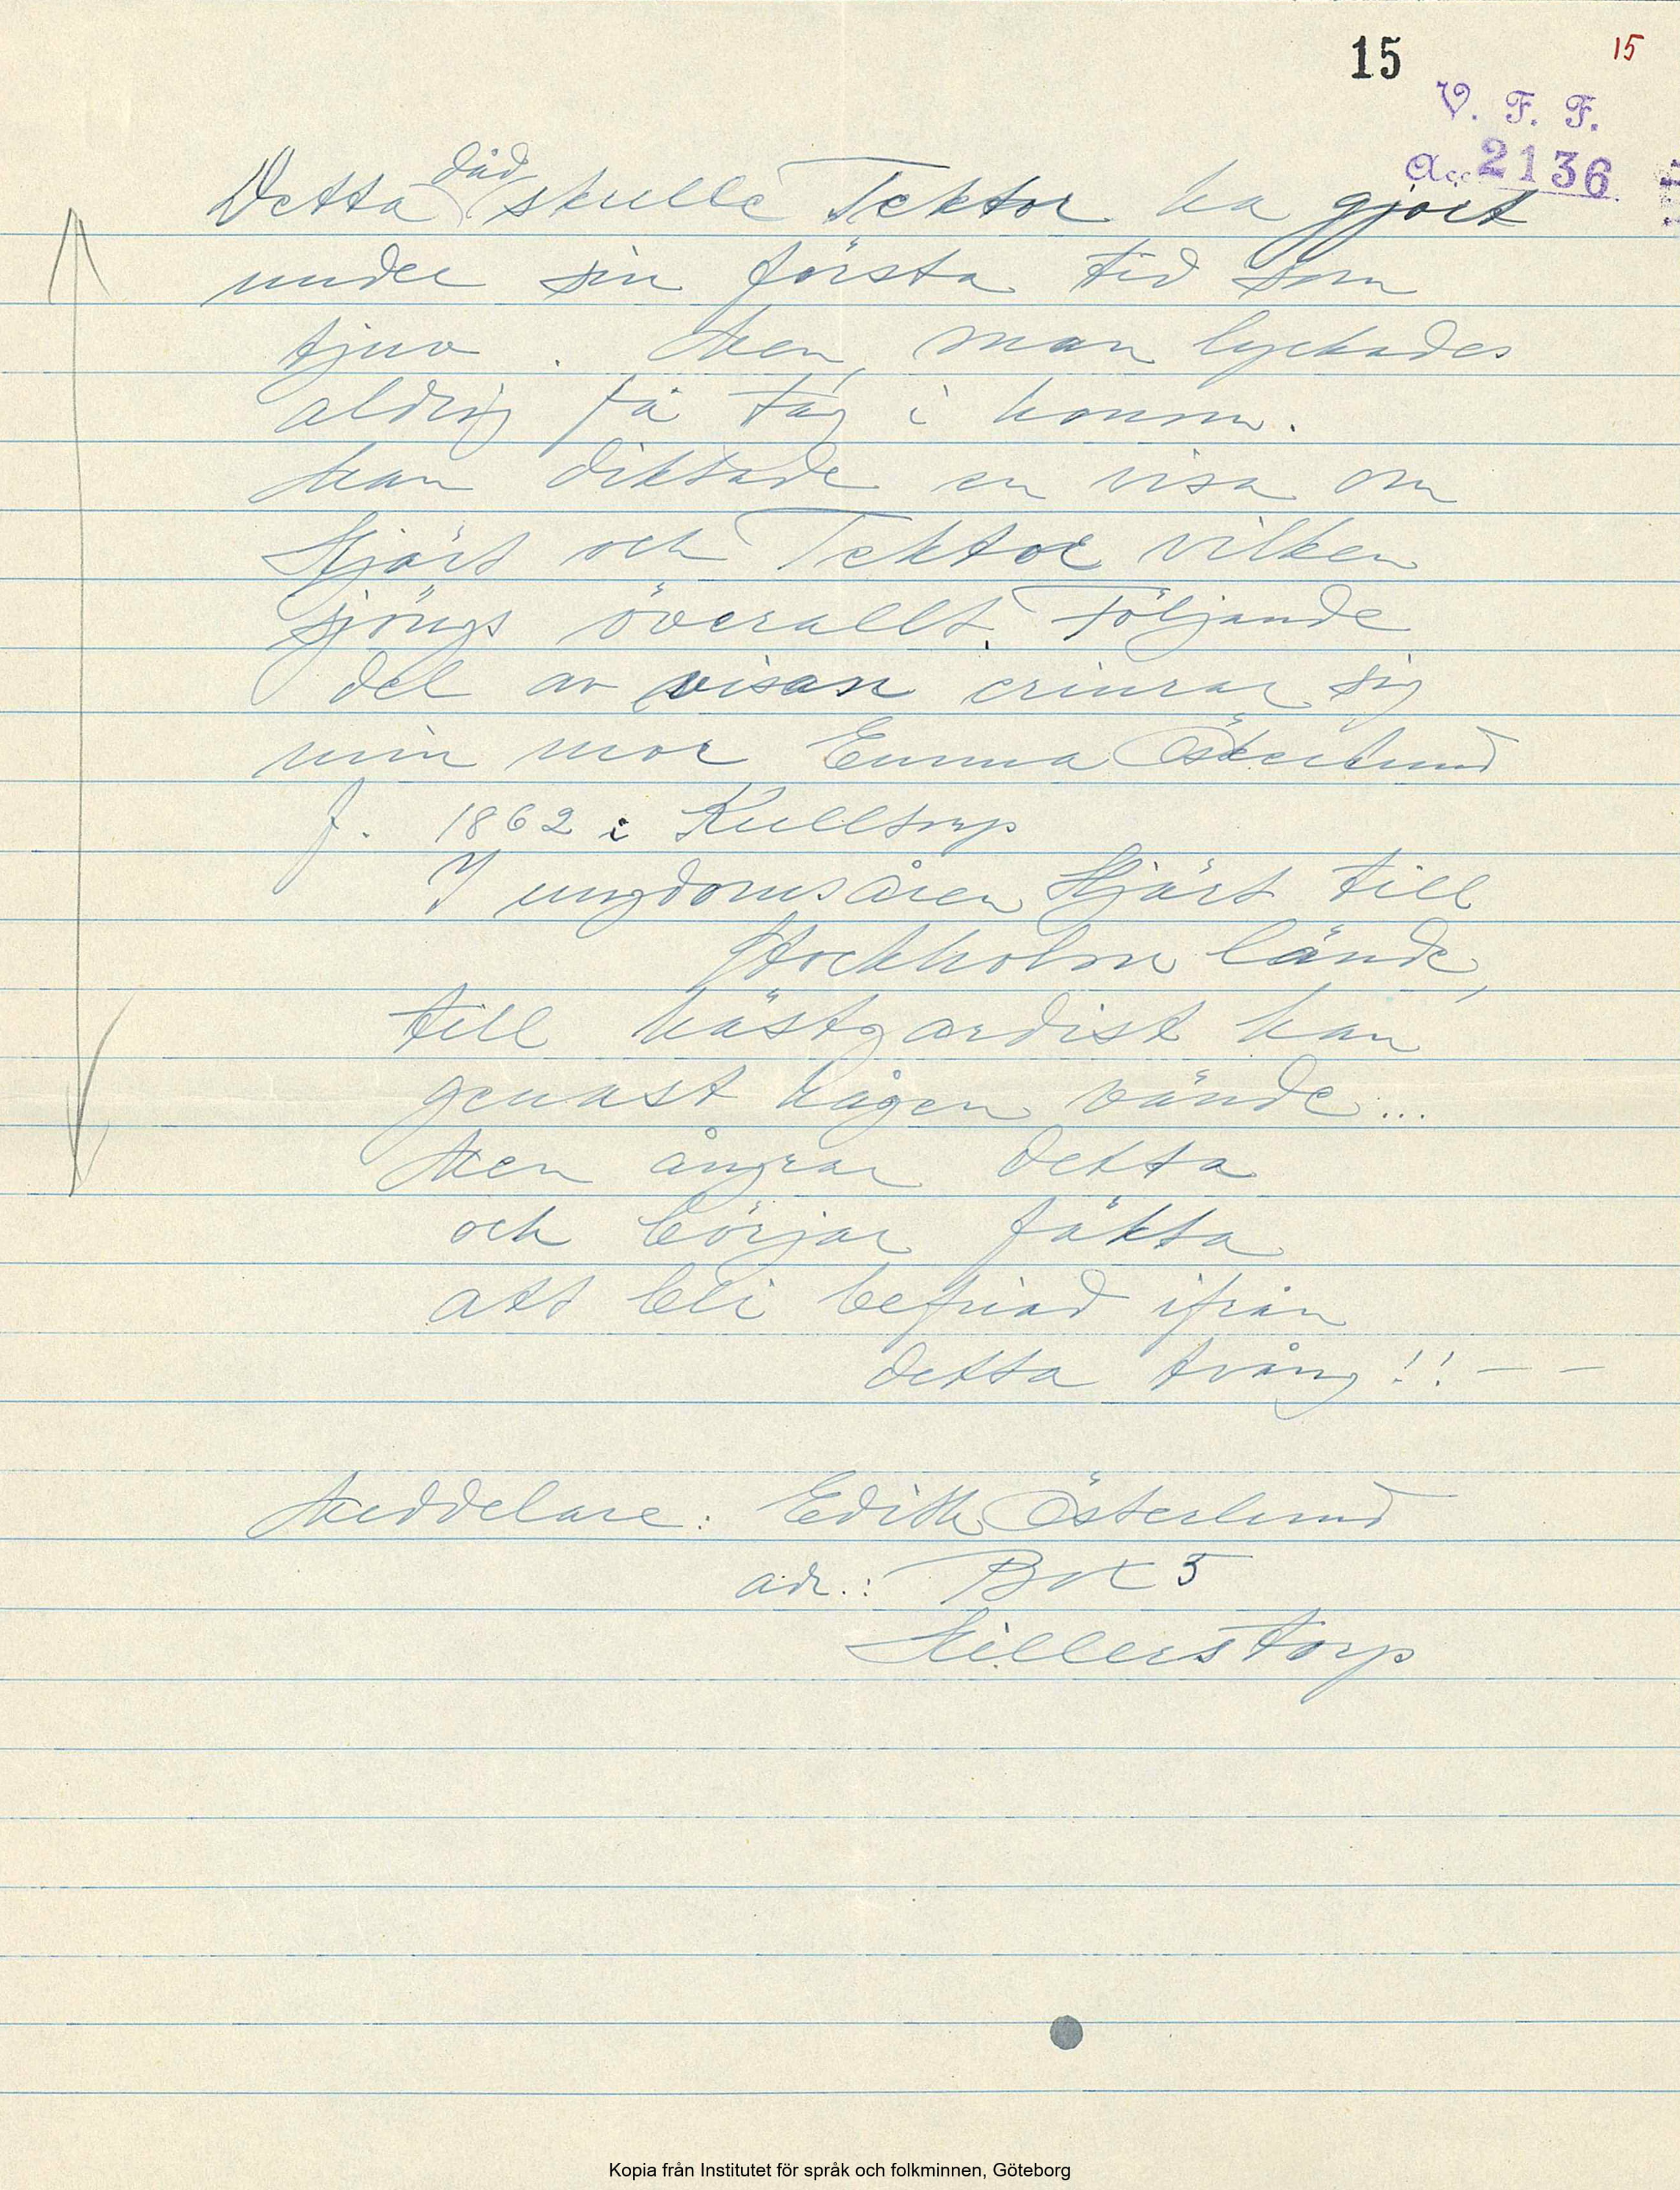 15
15
V. F. F.
Acc 2136
dåd
Detta skulle Tektor ha gjort
under sin första tid som
tjuv. Men, man lyckades
aldrig få tag i honom.
Man diktade en visa om
Hjärt och Tektor vilken
sjöngs överallt. Följande
del av visan erinrar sig
min mor Emma Österlund
f. 1862 i Kulltorp
I ungdomsåren Hjärt till
Stockholm lände,
till hästgardist han
genast hågen vände...
Men ångrar detta
och börjar fäkta
att bli befriad ifrån
detta tvång!! – –
Meddelare: Edith Österlund
adr.: Box 5
Hillerstorp
Kopia från Institutet för språk och folkminnen, Göteborg